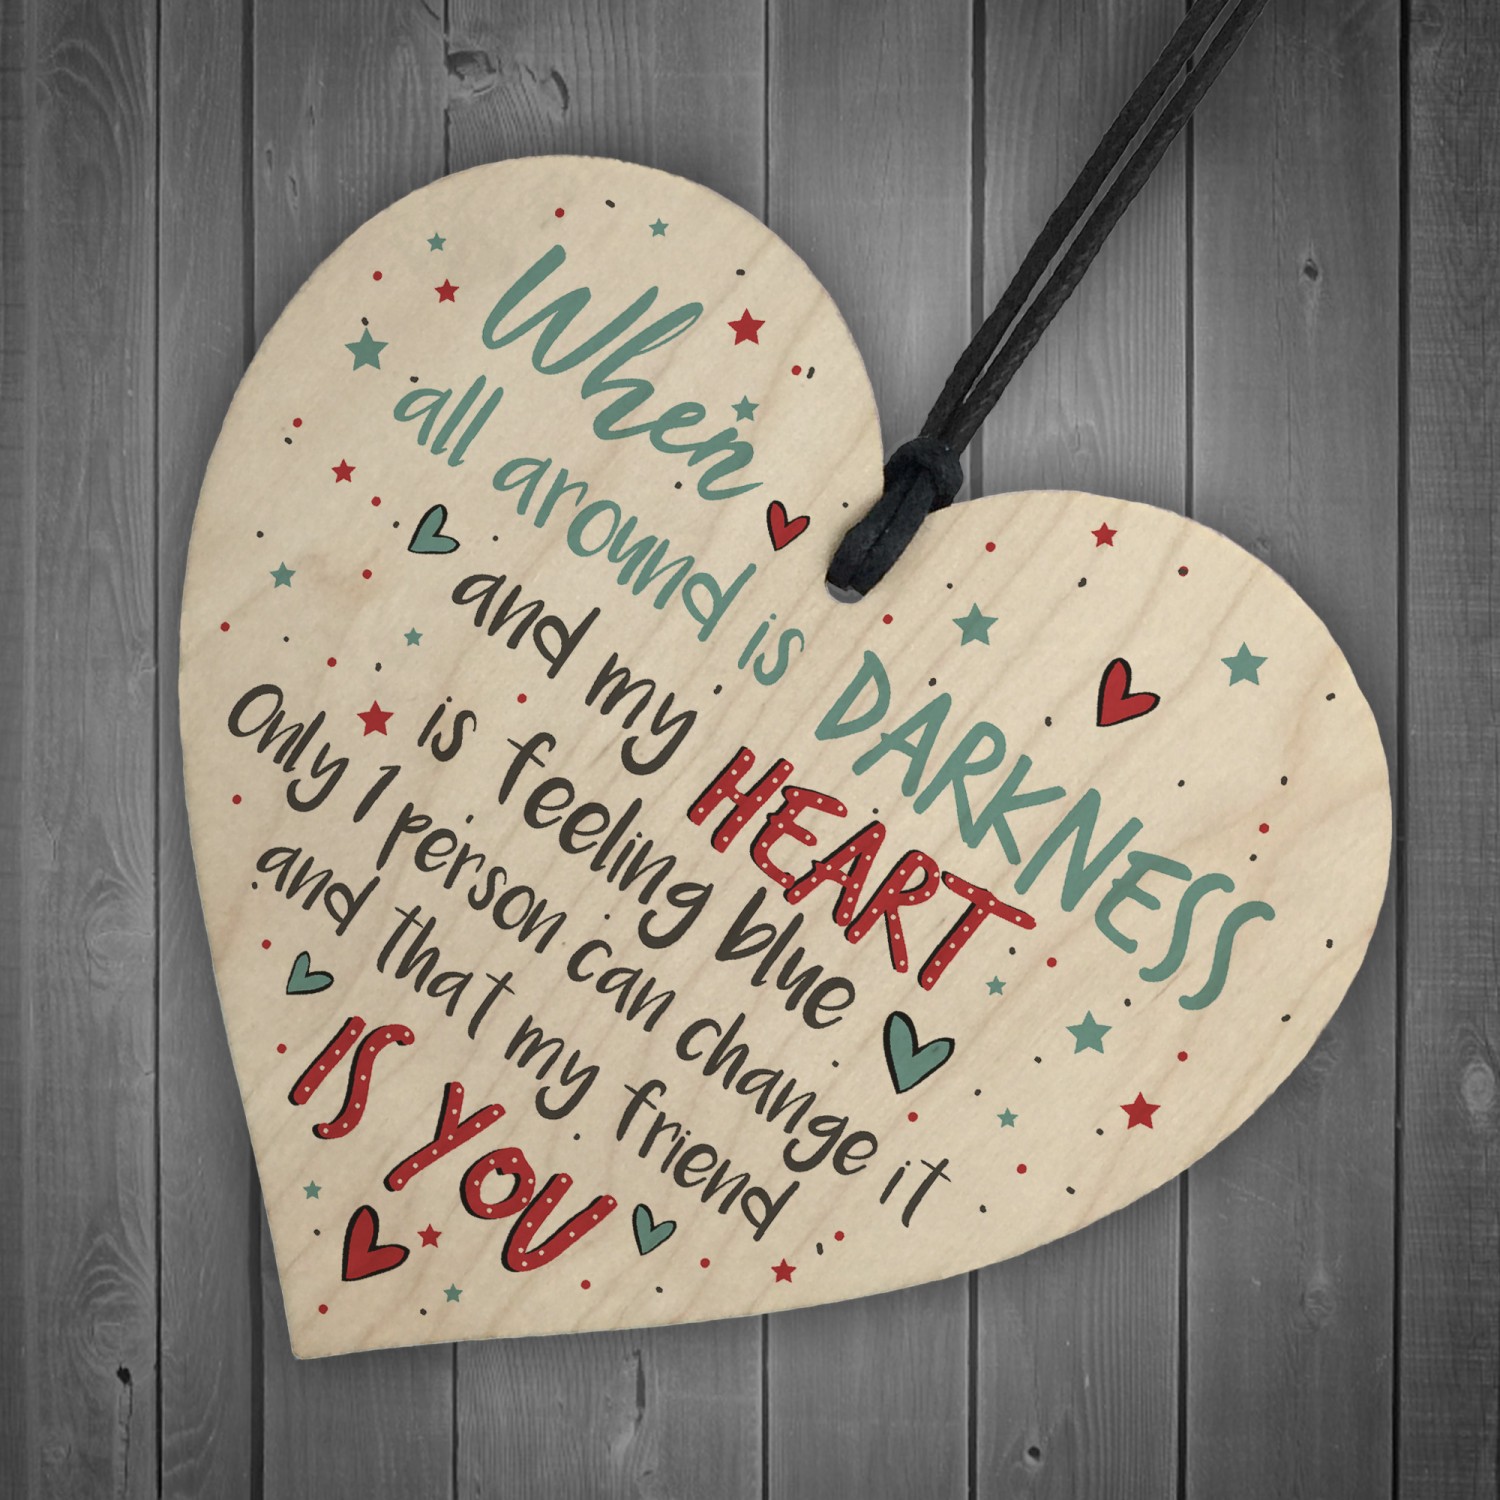 When
all around is DARKNESS
and my HEART
is feeling blue
Only 1 person can change it
and that my friend
IS YOU